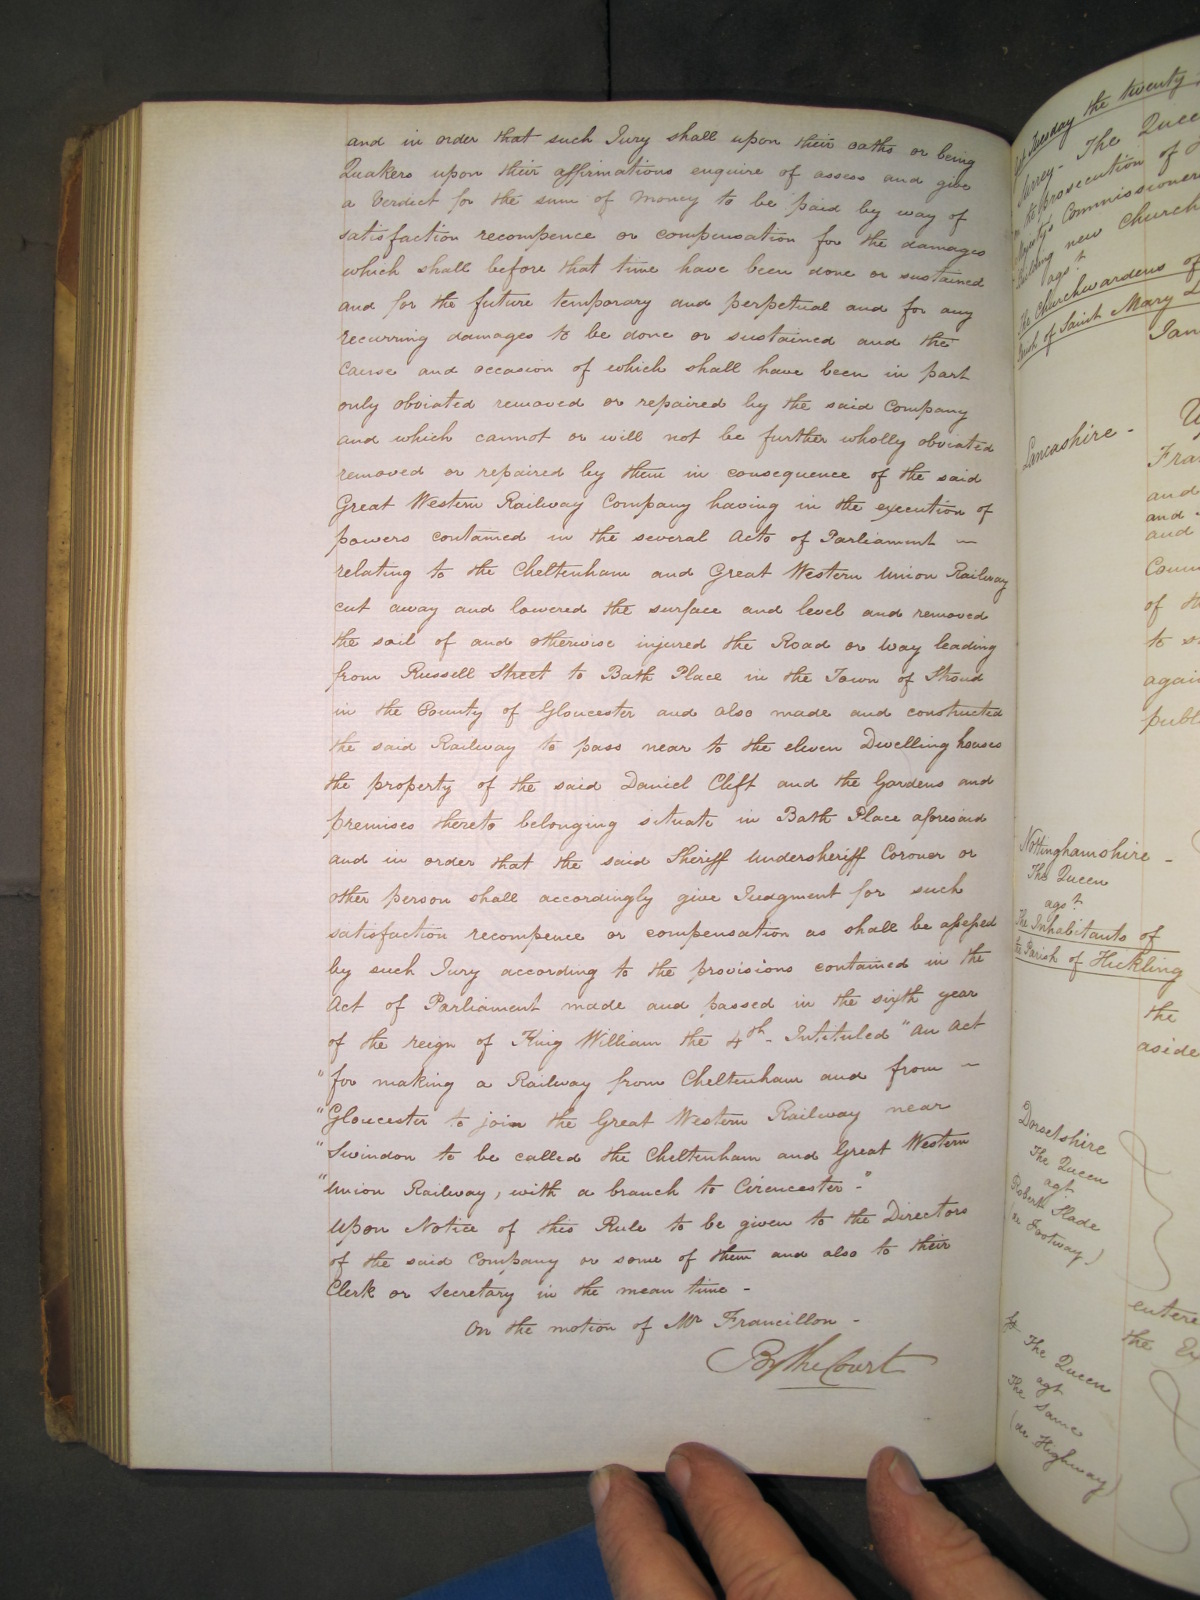 and in order that such Jury shall upon their oaths or being
Quakers upon their affirmations enquire of assess and give
a Verdict for the sum of Money to be paid by way of
satisfaction recompence or compensation for the damages
which shall before that time have been done or sustained
and for the future temporary and perpetual and for any
recurring damages to be done or sustained and the
Cause and occasion of which shall have been in part
only obviated removed or repaired by the said Company
and which cannot or will not be further wholly obviated
removed or repaired by them in consequence of the said
Great Western Railway Company having in the execution of
powers contained in the several Acts of Parliament —
relating to the Cheltenham and Great Western Union Railway
cut away and lowered the surface and level and removed
the soil of and otherwise injured the Road or way leading
from Russell Street to Bath Place in the Town of Stroud
in the County of Gloucester and also made and constructed
the said Railway to pass near to the eleven Dwelling houses
the property of the said Daniel Clift and the Gardens and
premises thereto belonging situate in Bath Place aforesaid
and in order that the said Sheriff Undersheriff Coroner or
other person shall accordingly give Judgment for such
satisfaction recompence or compensation as shall be assessed
by such Jury according to the provisions contained in the
Act of Parliament made and passed in the sixth year
of the reign of King William the 4th. Intituled "An Act
"for making a Railway from Cheltenham and from —
"Gloucester to join the Great Western Railway near
"Swindon to be called the Cheltenham and Great Western
"Union Railway, with a branch to Cirencester."
Upon Notice of this Rule to be given to the Directors
of the said Company or some of them and also to their
Clerk or Secretary in the mean time -
On the motion of Mr Francillon -
By the Court
Tuesday the twenty
Surrey - The Queen
the prosecution of
Majesty's Commissioners
building new Church
agst
The Churchwardens of
Parish of Saint Mary
Jan
Lancashire -
Fra
and
and
and
Coun
of th
to
again
publ
Nottinghamshire -
The Queen
agst
The Inhabitants of
the Parish of Hickling
the
aside
Dorsetshire
The Queen
agt
Robert Slade
(as Footway)
entere
the
The Queen
agt
The Same
(as Highway)